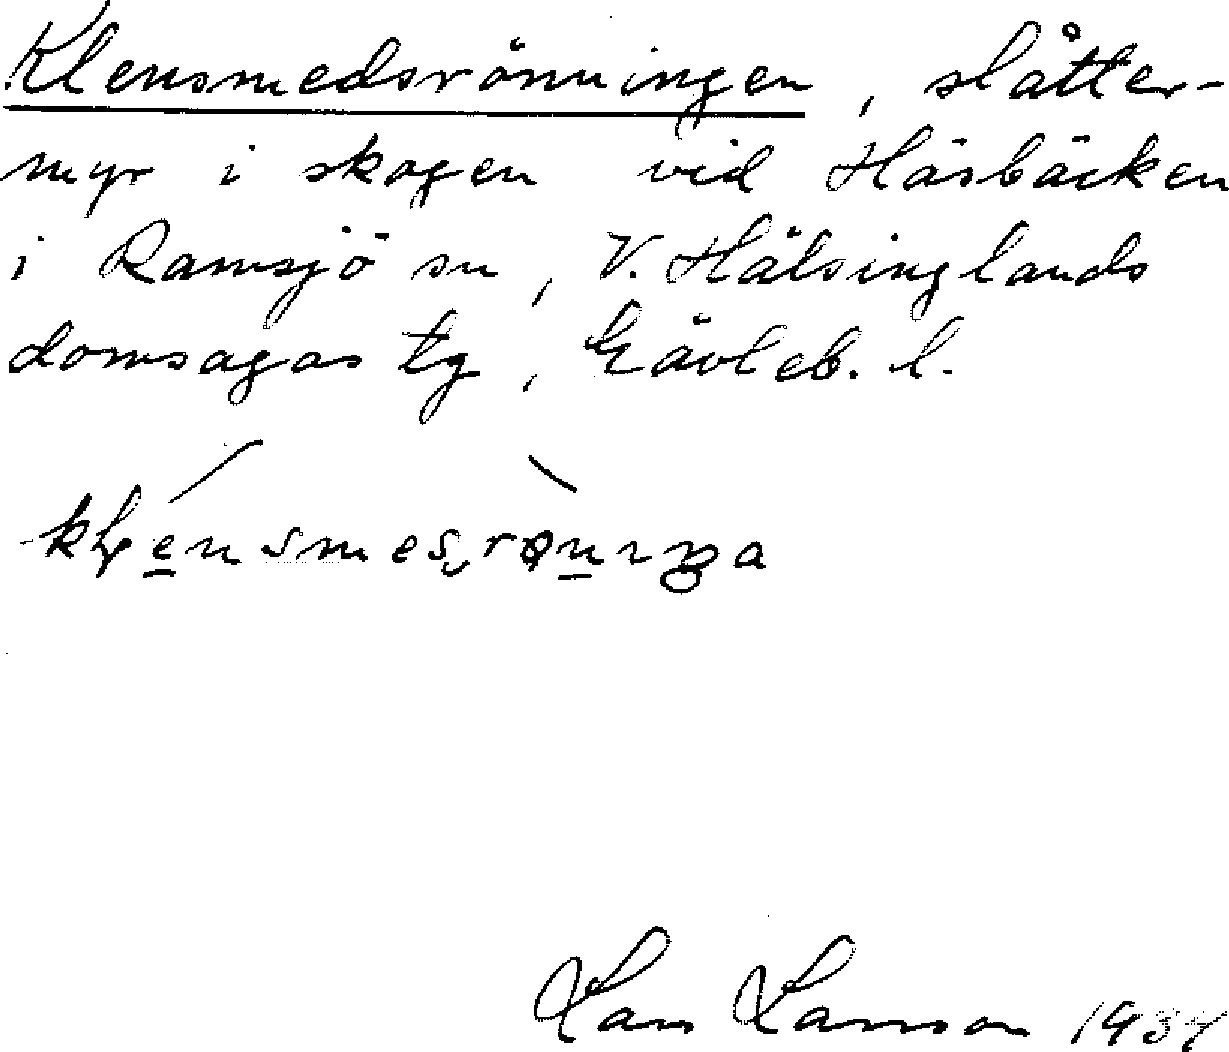 Klensmedsrönningen, slåtter-
myr i skogen vid Häsbäcken
i Ramsjö sn, V. Hälsinglands
domsagas tg, Gävleb. l.
Lars Larsson 1934